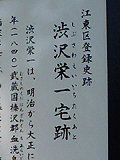 江東区登録史跡
しぶさわえいいちたくあと
渋沢栄一宅跡
渋沢栄一は、明治から大正に
年(一八四〇)武蔵国榛沢郡血洗